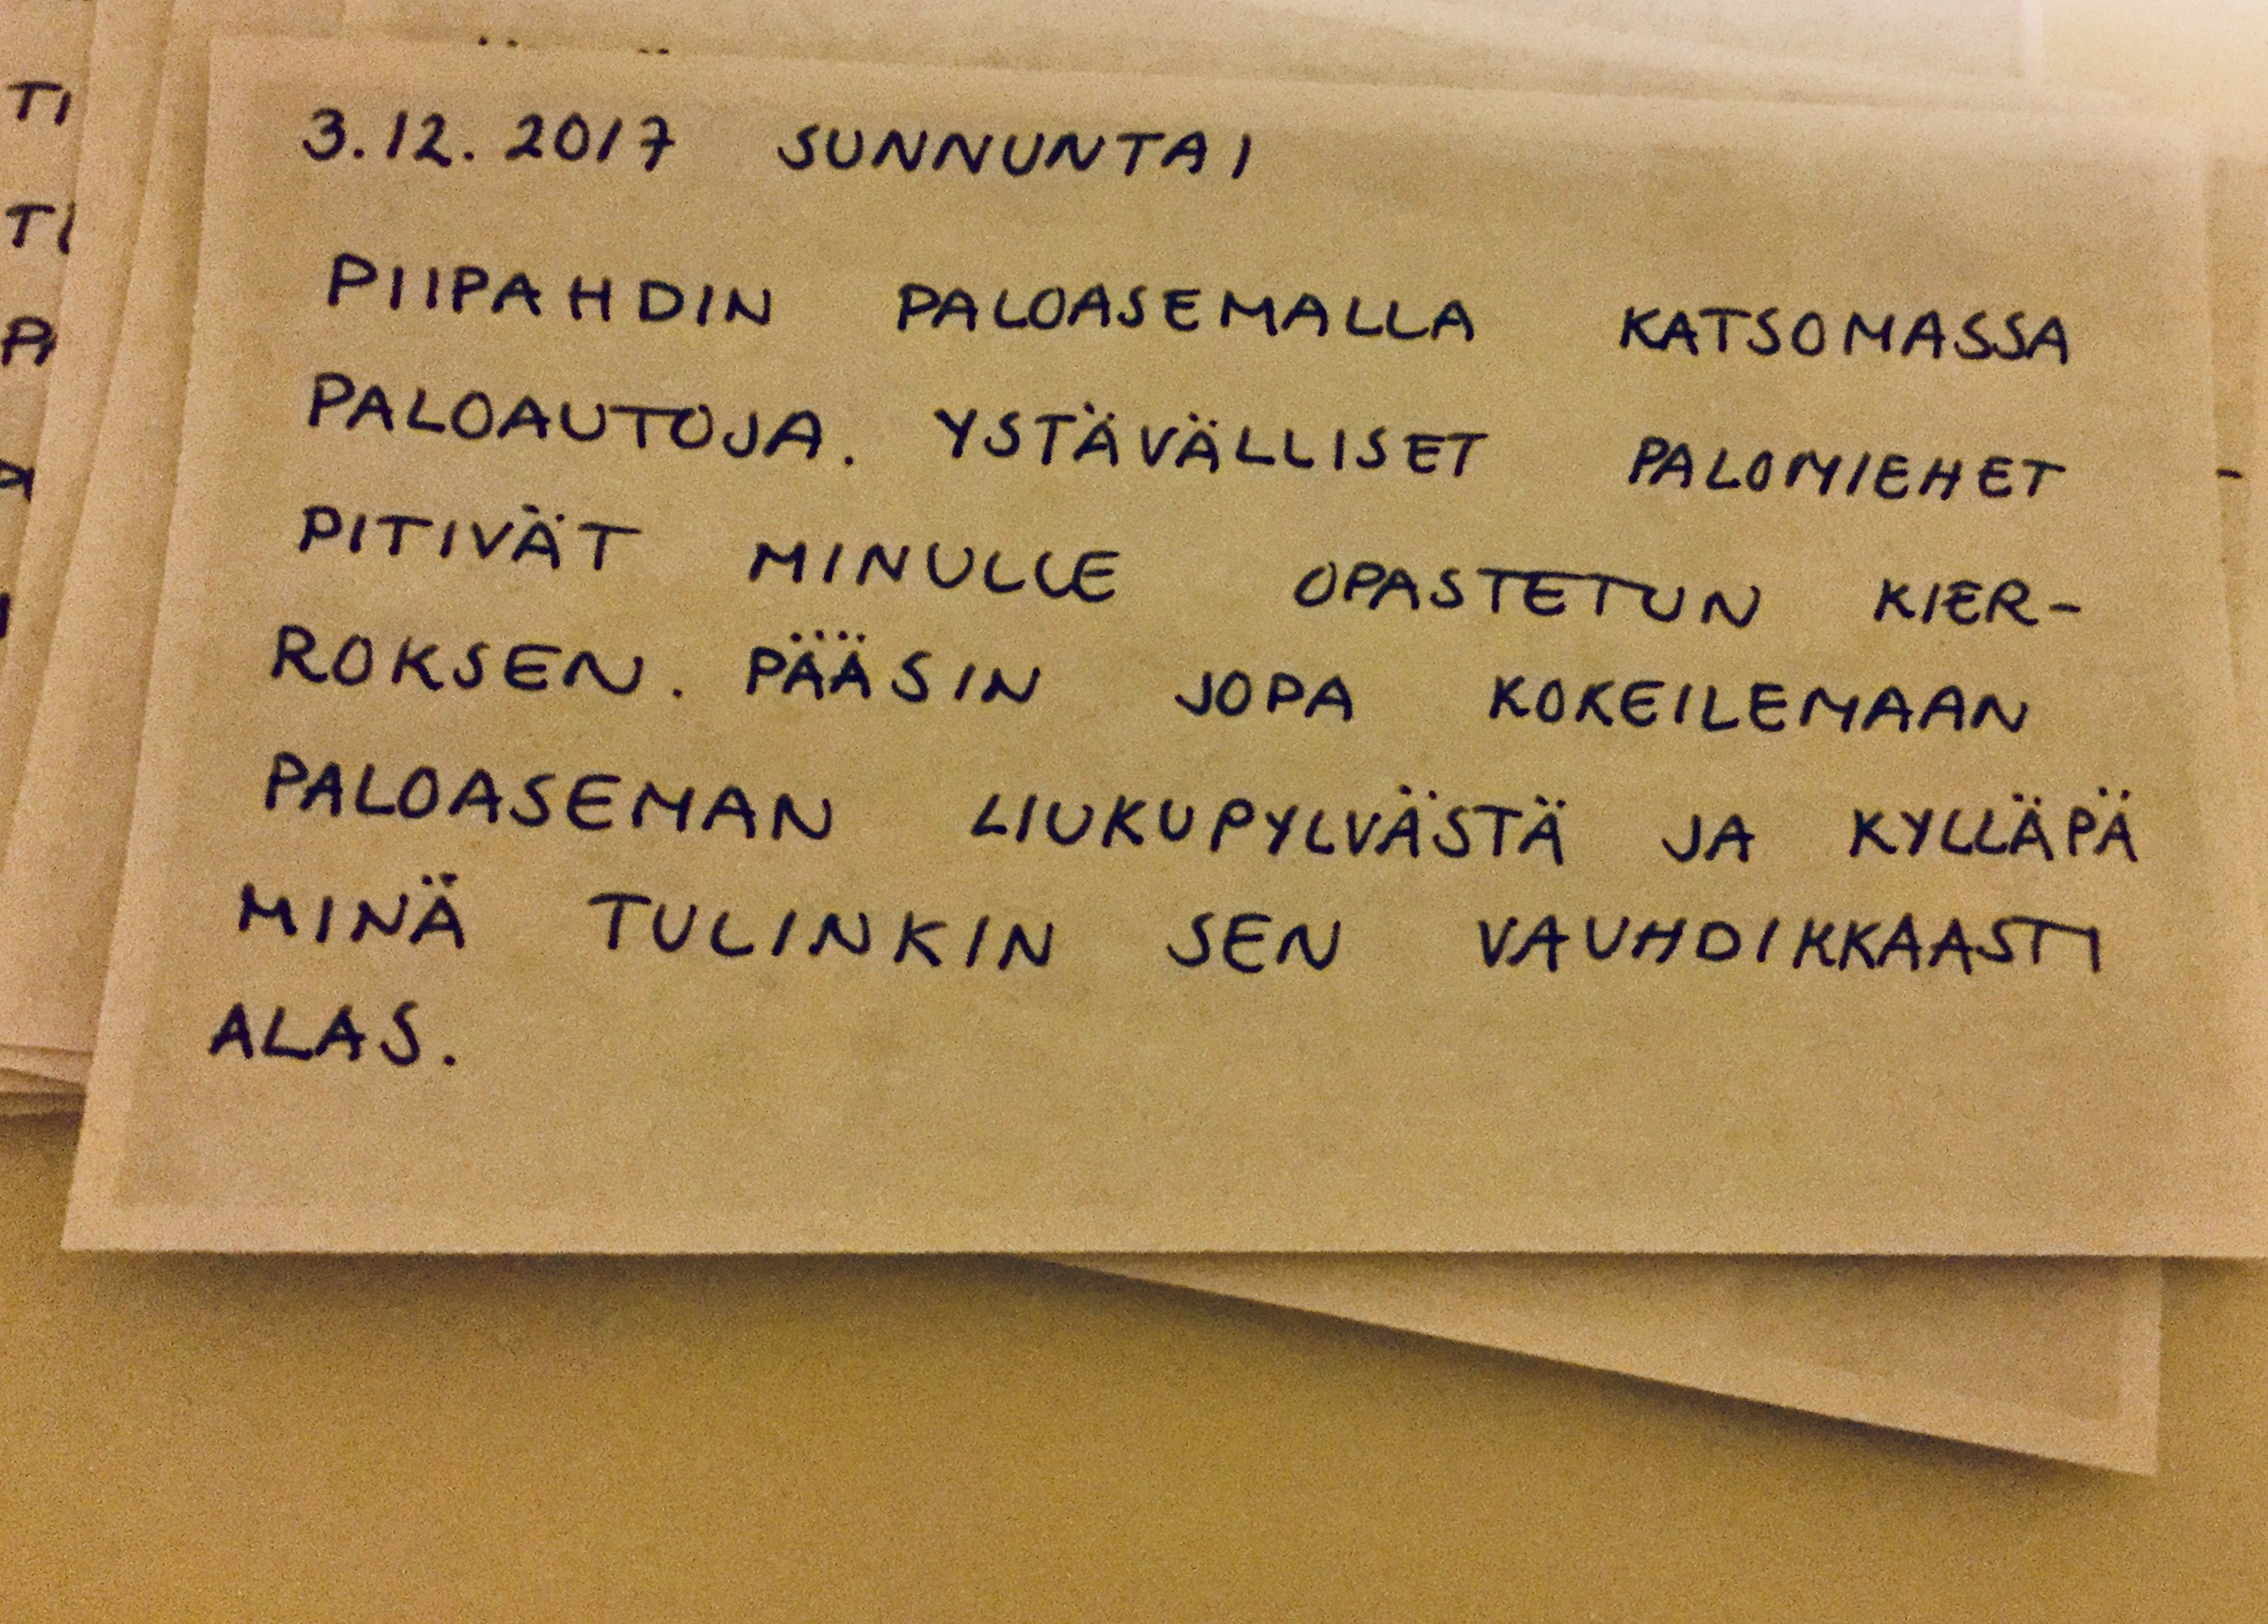 3.12.2017 SUNNUNTAI
PIIPAHDIN PALOASEMALLA KATSOMASSA
PALOAUTOJA. YSTÄVÄLLISET PALOMIEHET
PITIVÄT MINULLE OPASTETUN KIER-
ROKSEN. PÄÄSIN JOPA KOKEILEMAAN
PALOASEMAN LIUKUPYLVÄSTÄ JA KYLLÄPÄ
MINÄ TULINKIN SEN VAUHDIKKAASTI
ALAS.